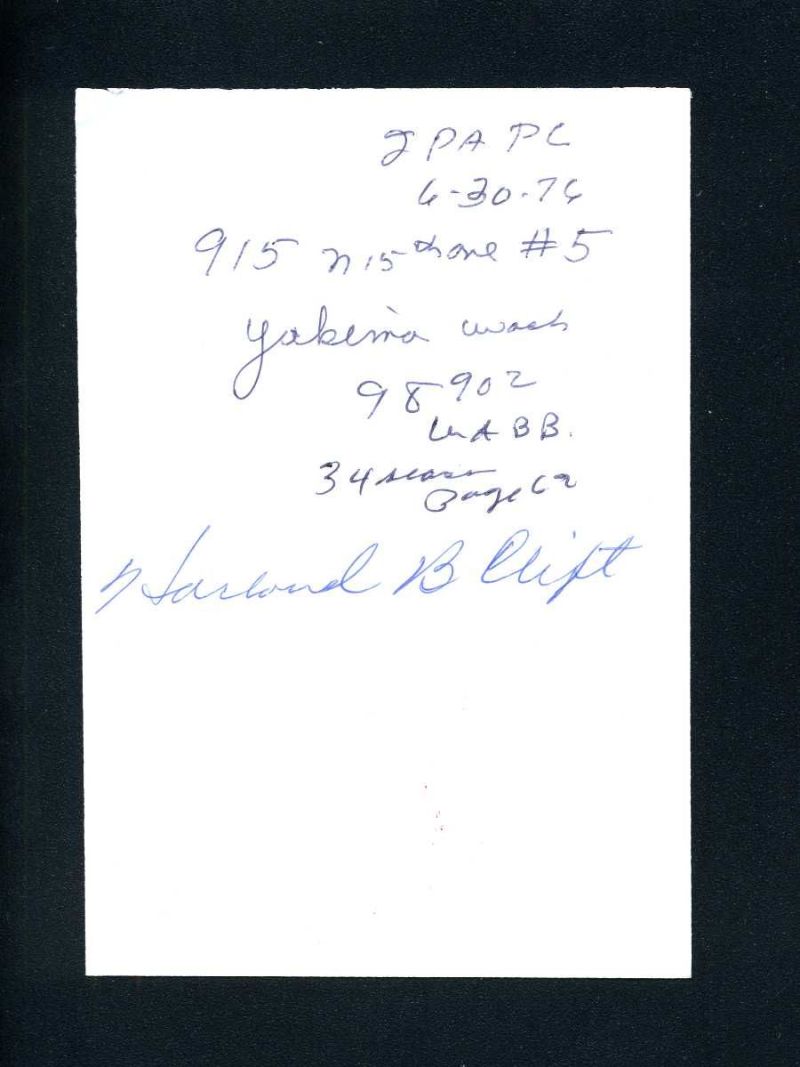 PA PC
6-30-76
915 N 15th ave #5
Yakima Wash
98902
ABB.
34 season
Page 62
Harland B Clift